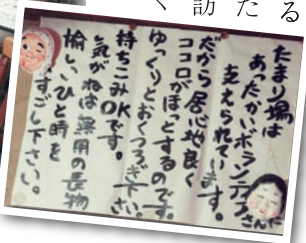 る
た
訪
たまり場は
あったかいボランティアさんに
支えられています。
だから居心地良く
ココロがほっとするのです。
ゆっくりとおくつろぎ下さい。
持ちこみOKです。
気がねは無用の長物
愉しいひと時を
すごし下さい。